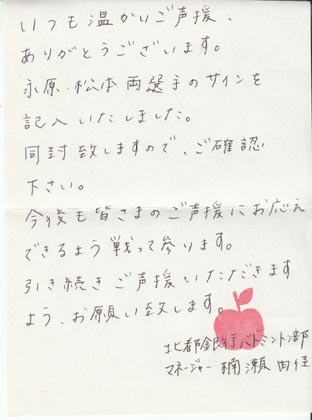 いつも温かいご声援、
ありがとうございます。
永原・松本両選手のサインを
記入いたしました。
同封致しますので、ご確認
下さい。
今後も皆さまのご声援にお応え
できるよう戦って参ります。
引き続きご声援いただきます
よう、お願い致します。
北都銀行バドミントン部
マネージャー 楠瀬由佳